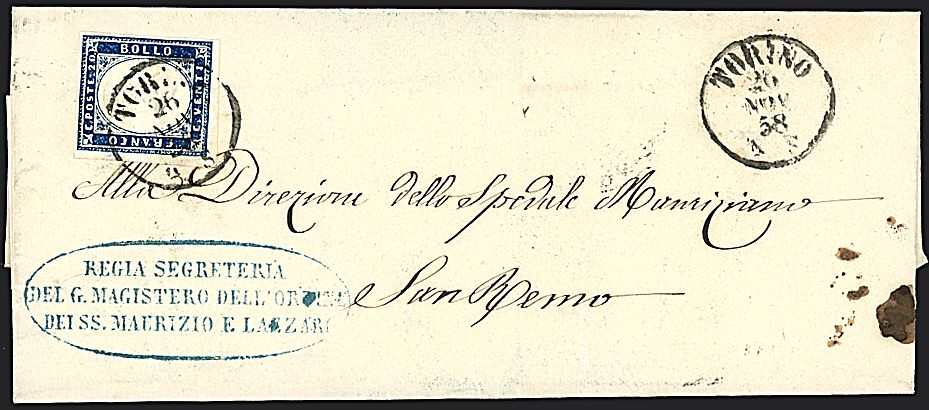 BOLLO
C. POSTE. 20
C. VENTI
FRANCO
26
TORINO
26
NOV
58
Alla Direzione dello Spedale Mauriziano
San Remo
REGIA SEGRETERIA
DEL G. MAGISTERO DELL'ORDINE
DEI SS. MAURIZIO E LAZZARO